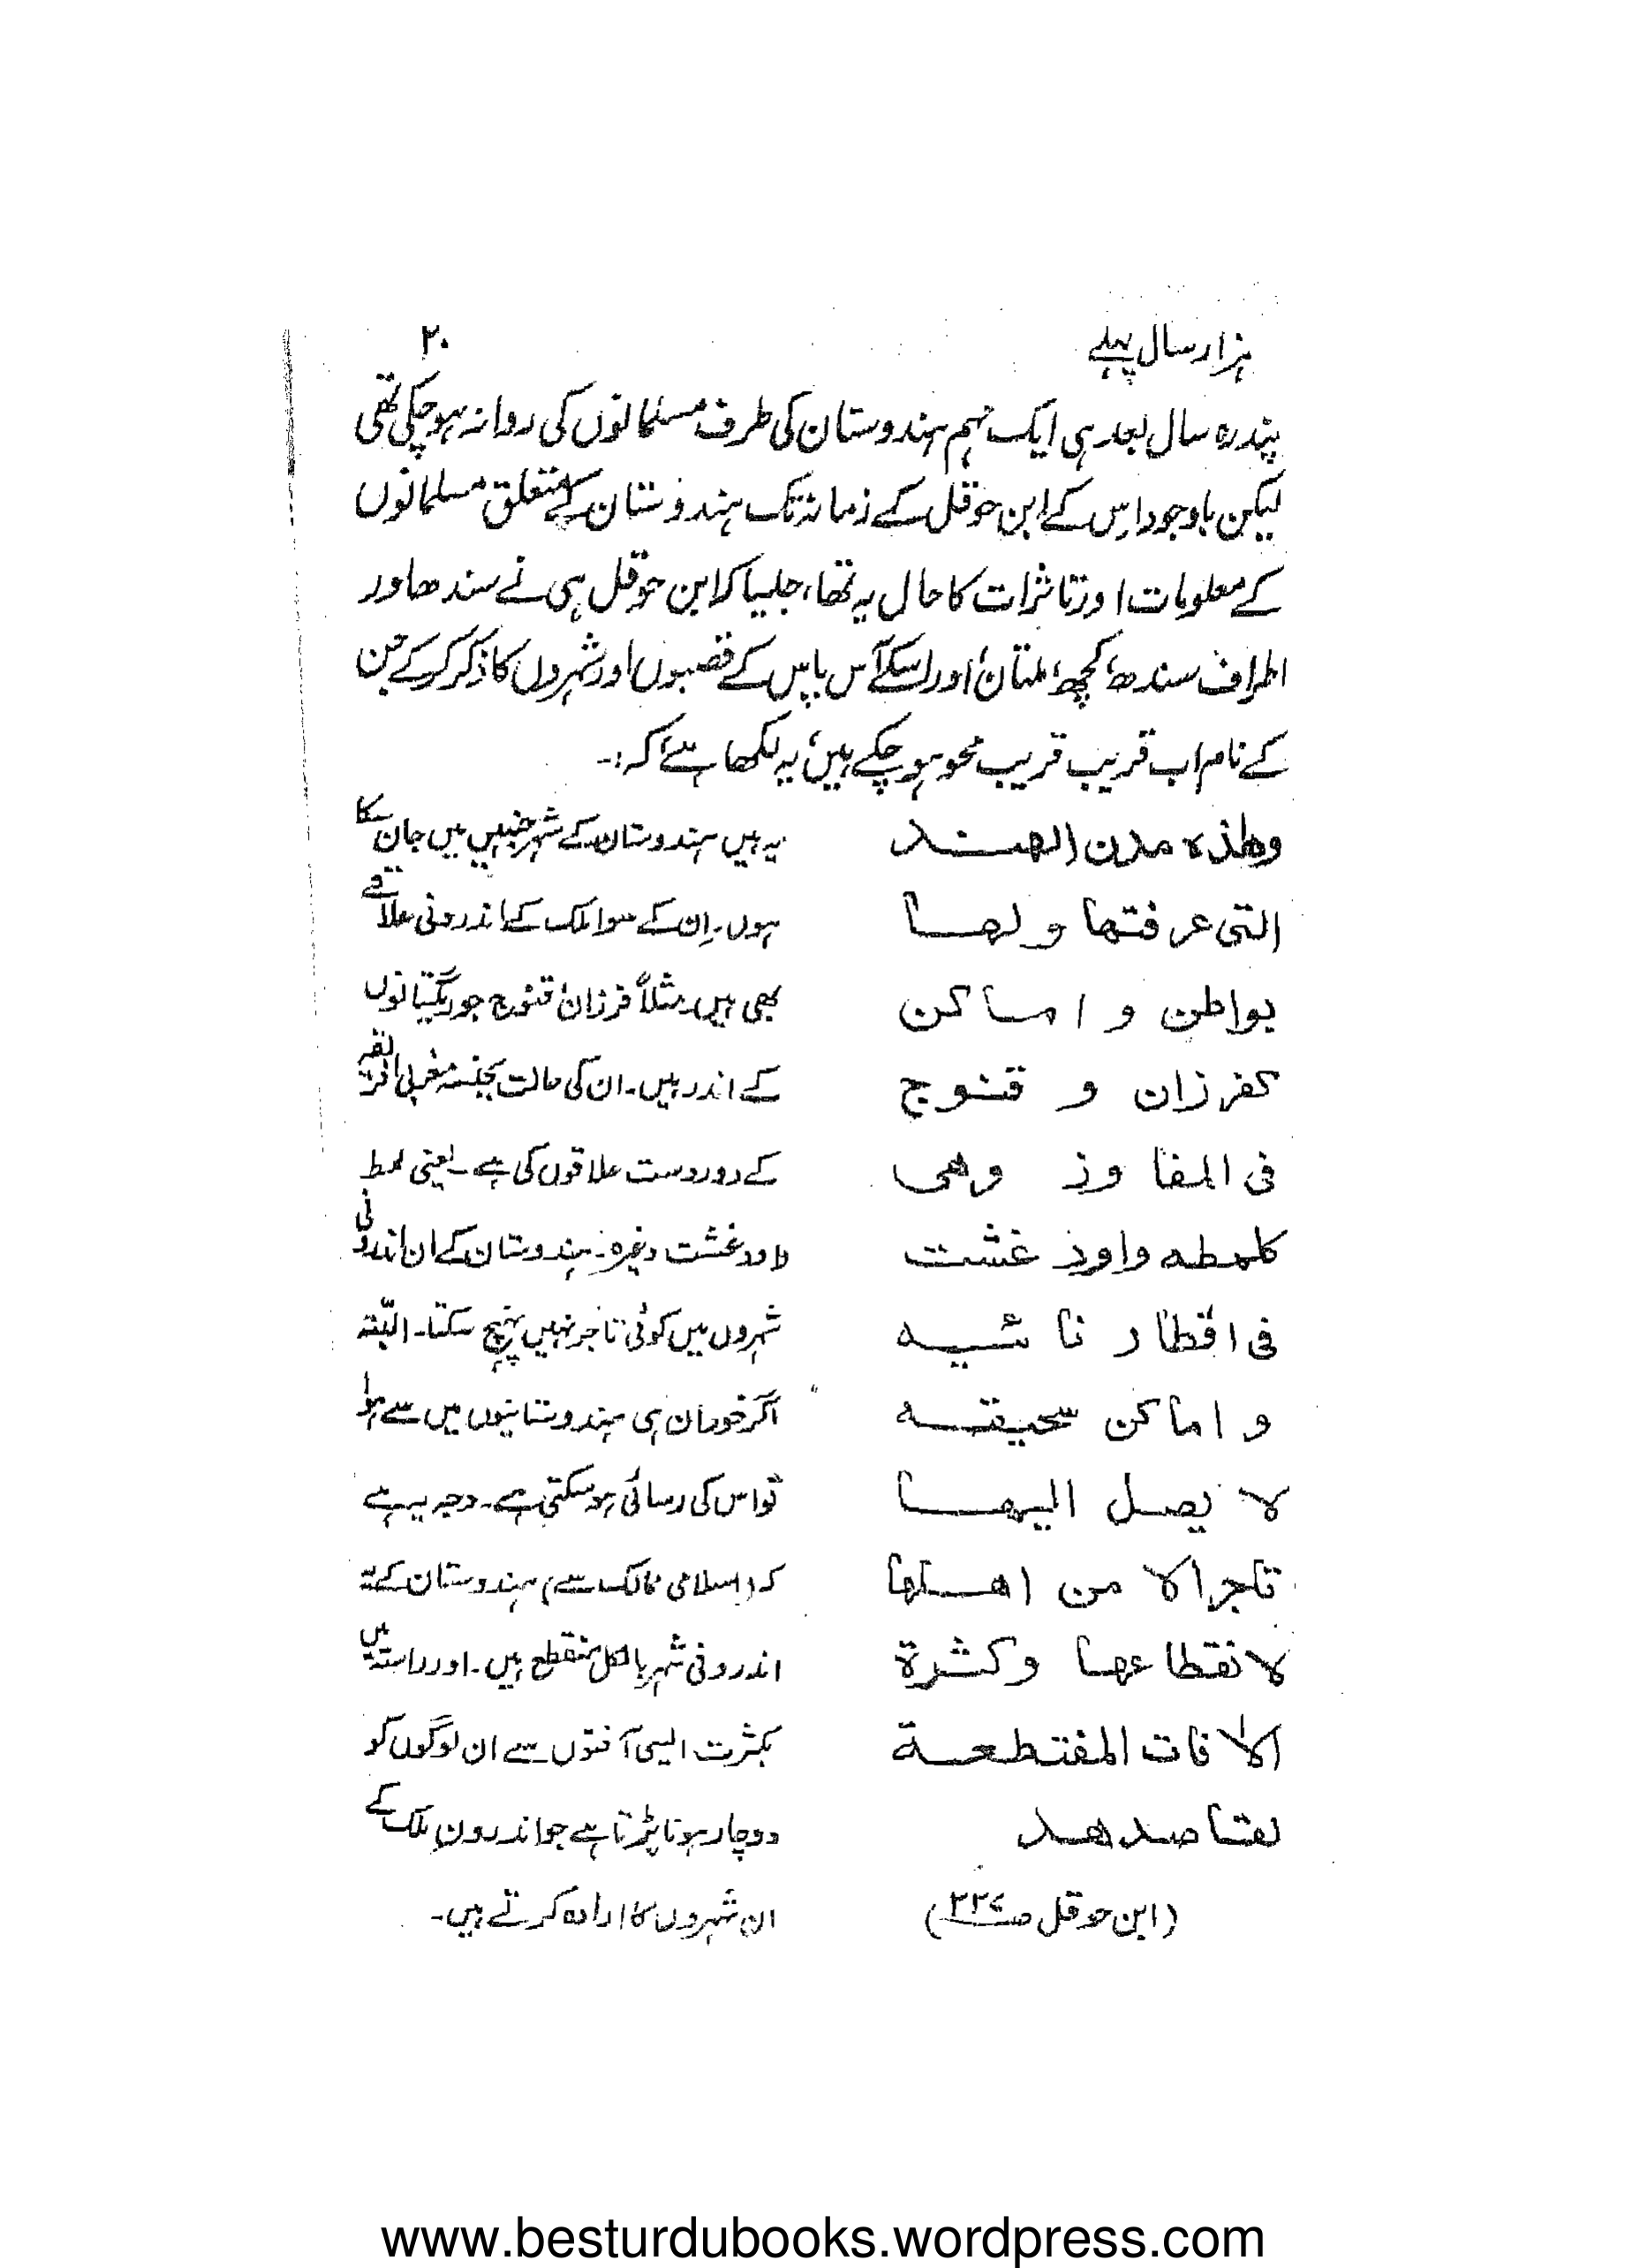 ہزار سال پہلے
۲۰
پندرہ سال بعد ہی ایک مہم ہندوستان کی طرف مسلمانوں کی روانہ ہو چکی تھی
لیکن باوجود اس کے ابن حوقل کے زمانہ تک ہندوستان کے متعلق مسلمانوں
کے معلومات اور تاثرات کا حال یہ تھا، جیسا کہ ابن حوقل ہی نے سندھ اور
اطراف سندھ، کچھ، ملتان، اور اسکے آس پاس کے قصبوں اور شہروں کا ذکر کر کے جن
کے نام اب قریب قریب محو ہو چکے ہیں، یہ لکھا ہے کہ:۔
وھٰذہ مدن الھند
التی عرفتھا ولھا
بواطن و اماکن
کفرزان و قنوج
فی المفاوز وھی
کلمطہ واوذغشت
فی اقطار نائیہ
و اماکن سحیقہ
لا یصل الیھا
تاجر الا من اھلھا
لانقطاعھا وکثرة
الاٰفات المقتطعة
لقاصدھا
(ابن حوقل ص ۳۲۷)
یہ ہیں ہندوستان کے شہر جنہیں میں جان سکا
ہوں۔ اِن کے سوا ملک کے اندرونی علاقے
بھی ہیں۔ مثلاً فرزان، قنوج جو ریگستانوں
کے اندر ہیں۔ ان کی حالت بجنسہ مغربی افریقہ
کے دور دست علاقوں کی ہے۔ یعنی لمط
اودغشت وغیرہ۔ ہندوستان کے ان اندرونی
شہروں میں کوئی تاجر نہیں پہنچ سکتا۔ البتہ
اگر خود ان ہی ہندوستانیوں میں سے ہو
تو اس کی رسائی ہو سکتی ہے۔ وجہ یہ ہے
کہ (اسلامی ممالک سے) ہندوستان کے یہ
اندرونی شہر بالکل منقطع ہیں۔ اور راستہ میں
بکثرت ایسی آفتوں سے ان لوگوں کو
دوچار ہونا پڑتا ہے جو اندرون ملک کے
ان شہروں کا ارادہ کرتے ہیں۔
www.besturdubooks.wordpress.com